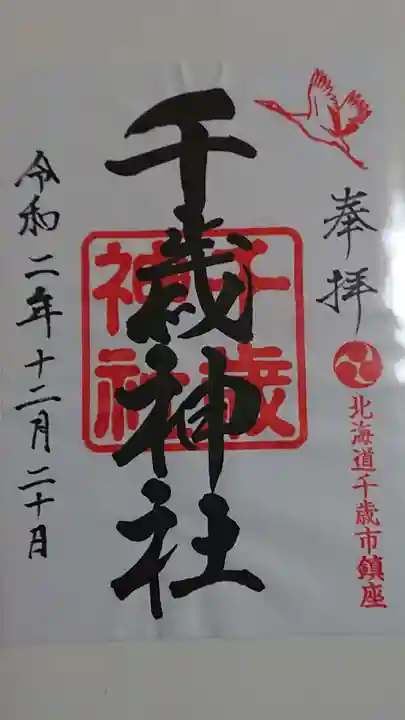 奉拝
北海道千歳市鎮座
千歳神社
千歳神社
令和二年十二月二十日